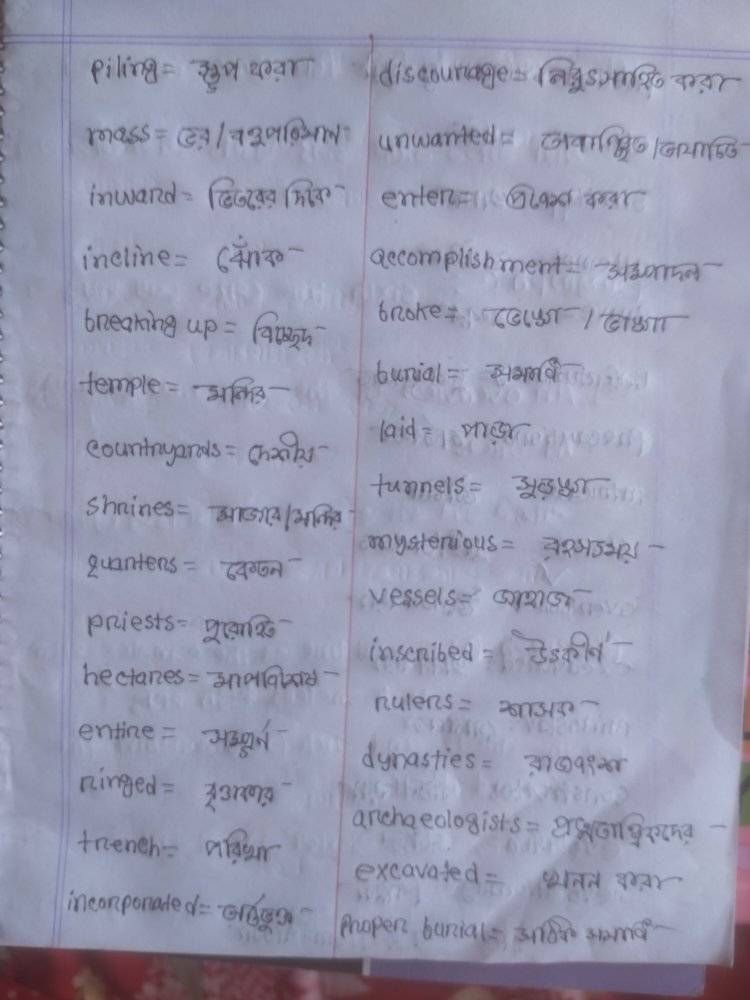 piling = স্তুপ করা
mass = ঢের / বস্তুপরিমাণ
inward = ভিতরের দিকে
incline = ঝোঁক
breaking up = বিচ্ছেদ
temple = মন্দির
countryards = দেশীয়
shrines = মাজার/মন্দির
quarters = বেতন
priests = পুরোহিত
hectares = মাপবিশেষ
entire = সম্পূর্ন
ringed = বৃত্তাকার
trench = পরিখা
incorporated = অর্ন্তভুক্ত
discourage = নিরুৎসাহিত করা
unwanted = অবাঞ্ছিত/অযাচিত
enter = প্রবেশ করা
accomplishment = সম্পাদন
broke = ভেঙ্গে / ভাঙ্গা
burial = সমাধি
laid = পাড়া
tunnels = সুড়ঙ্গ
mysterious = রহস্যময়
vessels = জাহাজ
inscribed = উৎকীর্ন
rulers = শাসক
dynasties = রাজবংশ
archaeologists = প্রত্নতাত্ত্বিকদের
excavated = খনন করা
proper burial = সঠিক সমাধি